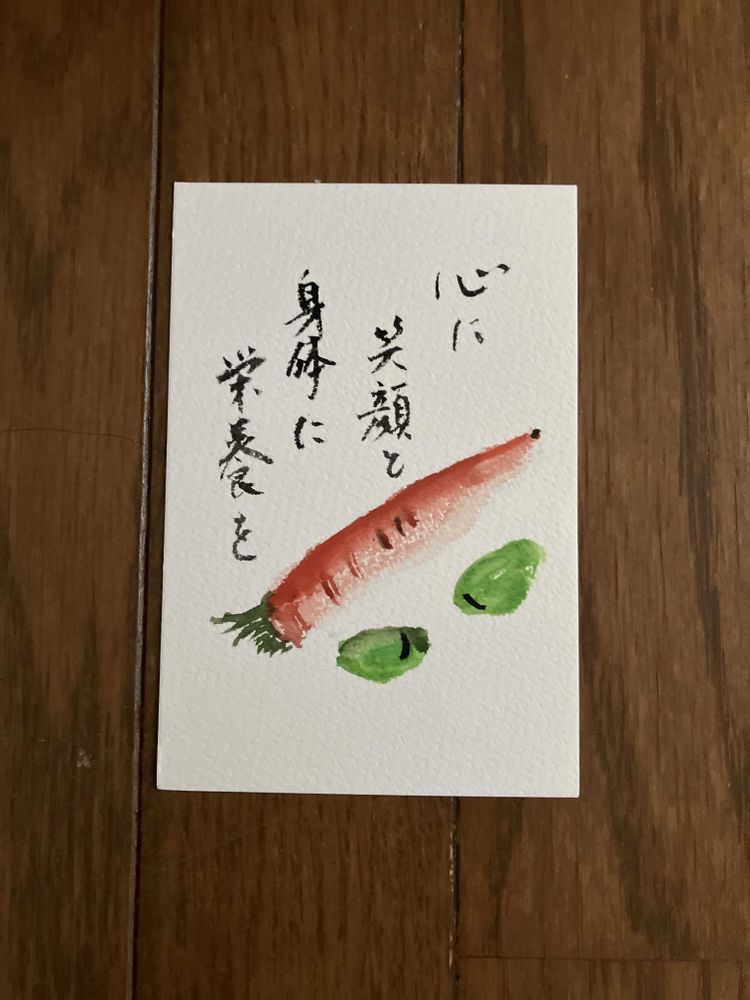 心に
笑顔と
身体に
栄養を